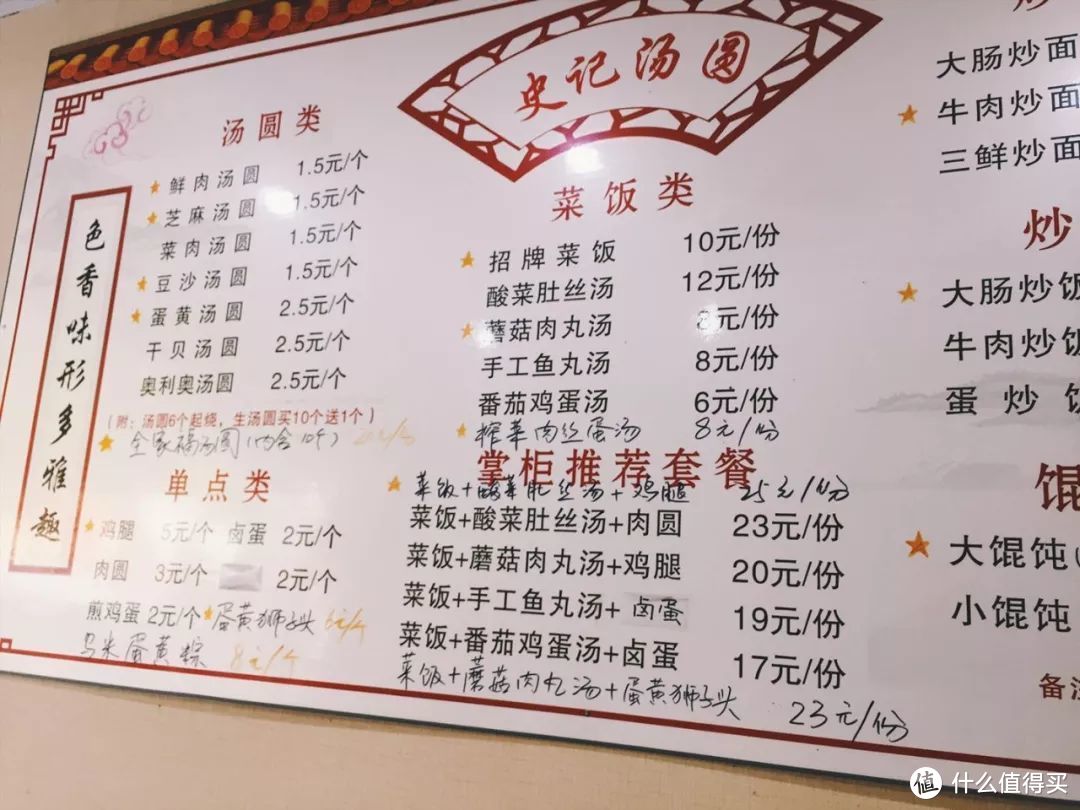 史记汤圆
色香味形多雅趣
汤圆类
鲜肉汤圆 1.5元/个
芝麻汤圆 1.5元/个
菜肉汤圆 1.5元/个
豆沙汤圆 1.5元/个
蛋黄汤圆 2.5元/个
干贝汤圆 2.5元/个
奥利奥汤圆 2.5元/个
(附:汤圆6个起烧,生汤圆买10个送1个)
全家福汤圆(内含10个)
单点类
鸡腿 5元/个 卤蛋 2元/个
肉圆 3元/个 2元/个
煎鸡蛋 2元/个 蛋黄狮子头 6元/个
乌米蛋黄粽 8元/个
菜饭类
招牌菜饭 10元/份
酸菜肚丝汤 12元/份
蘑菇肉丸汤 8元/份
手工鱼丸汤 8元/份
番茄鸡蛋汤 6元/份
榨菜肉丝蛋汤 8元/份
掌柜推荐套餐
菜饭+酸菜肚丝汤+鸡腿 25元/份
菜饭+酸菜肚丝汤+肉圆 23元/份
菜饭+蘑菇肉丸汤+鸡腿 20元/份
菜饭+手工鱼丸汤+卤蛋 19元/份
菜饭+番茄鸡蛋汤+卤蛋 17元/份
菜饭+蘑菇肉丸汤+蛋黄狮子头 23元/份
大肠炒面
牛肉炒面
三鲜炒面
炒
大肠炒饭
牛肉炒饭
蛋炒饭
馄
大馄饨(
小馄饨
备注
值 什么值得买